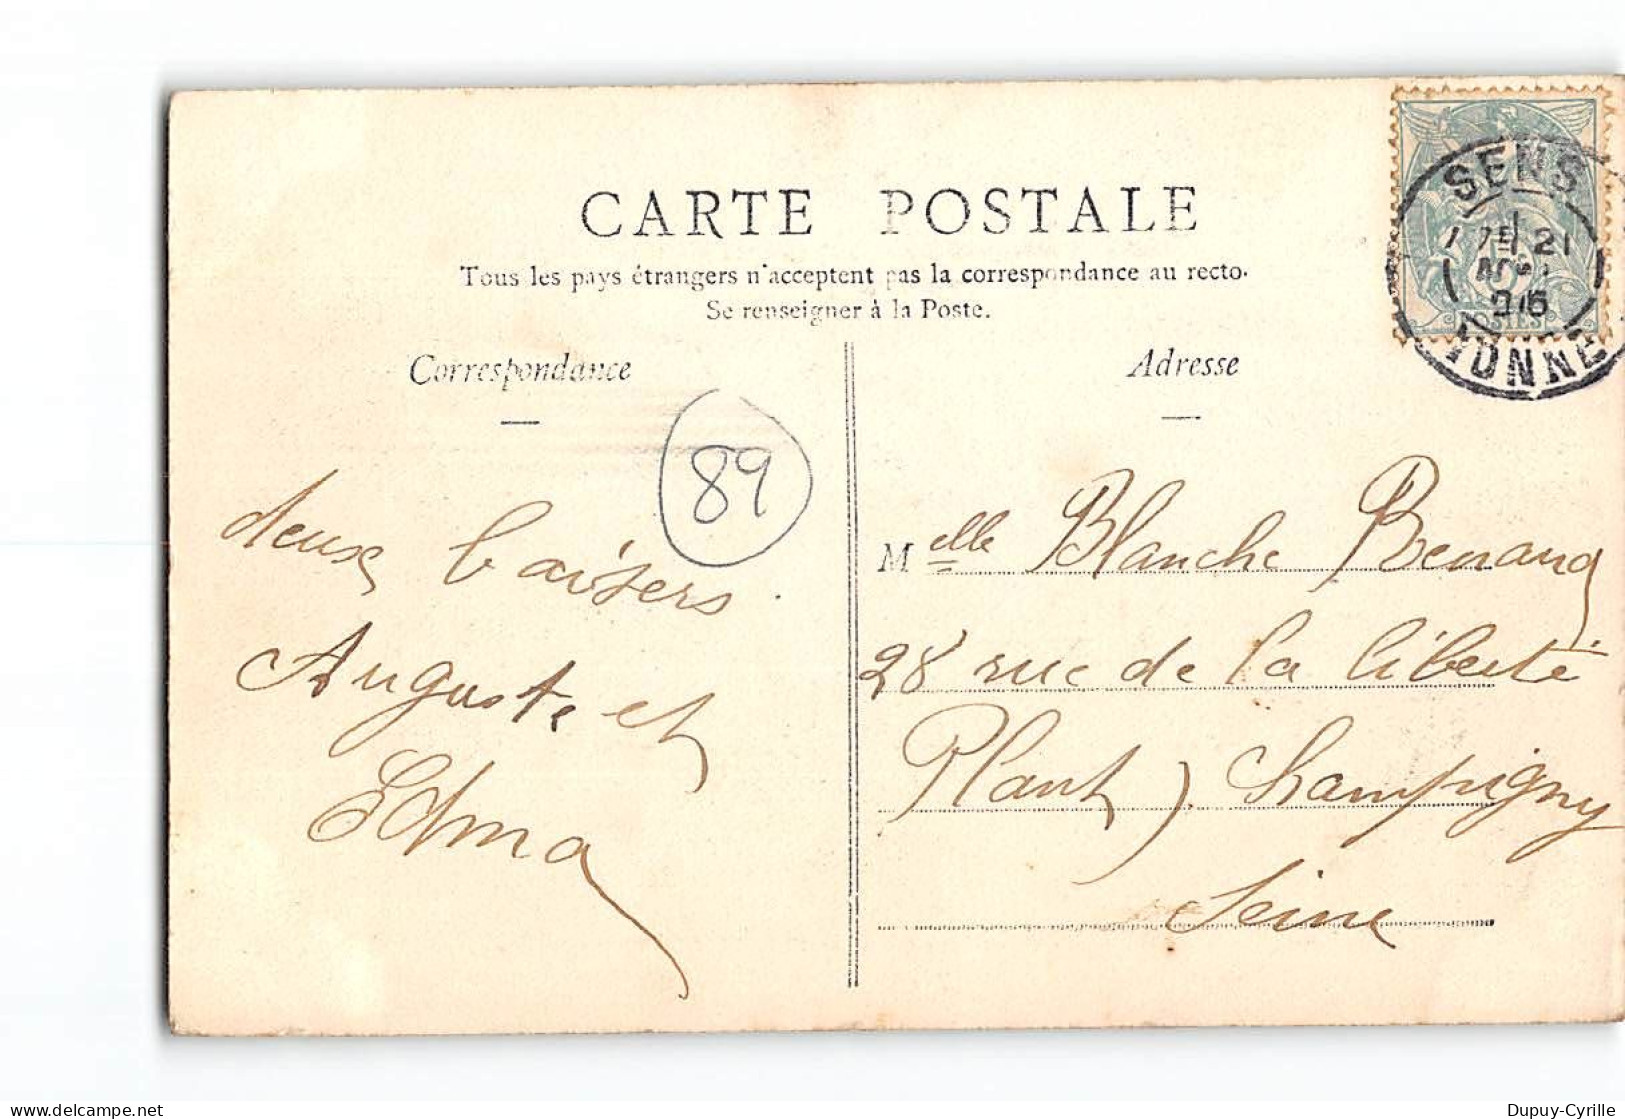 CARTE POSTALE
Tous les pays étrangers n'acceptent pas la correspondance au recto.
Se renseigner à la Poste.
Correspondance
Adresse
SENS
21
06
YONNE
POSTES
89
deux baisers.
Auguste et
Edma
Melle Blanche Benard
28 rue de la liberté
Plant, Champigny
Seine
Dupuy-Cyrille